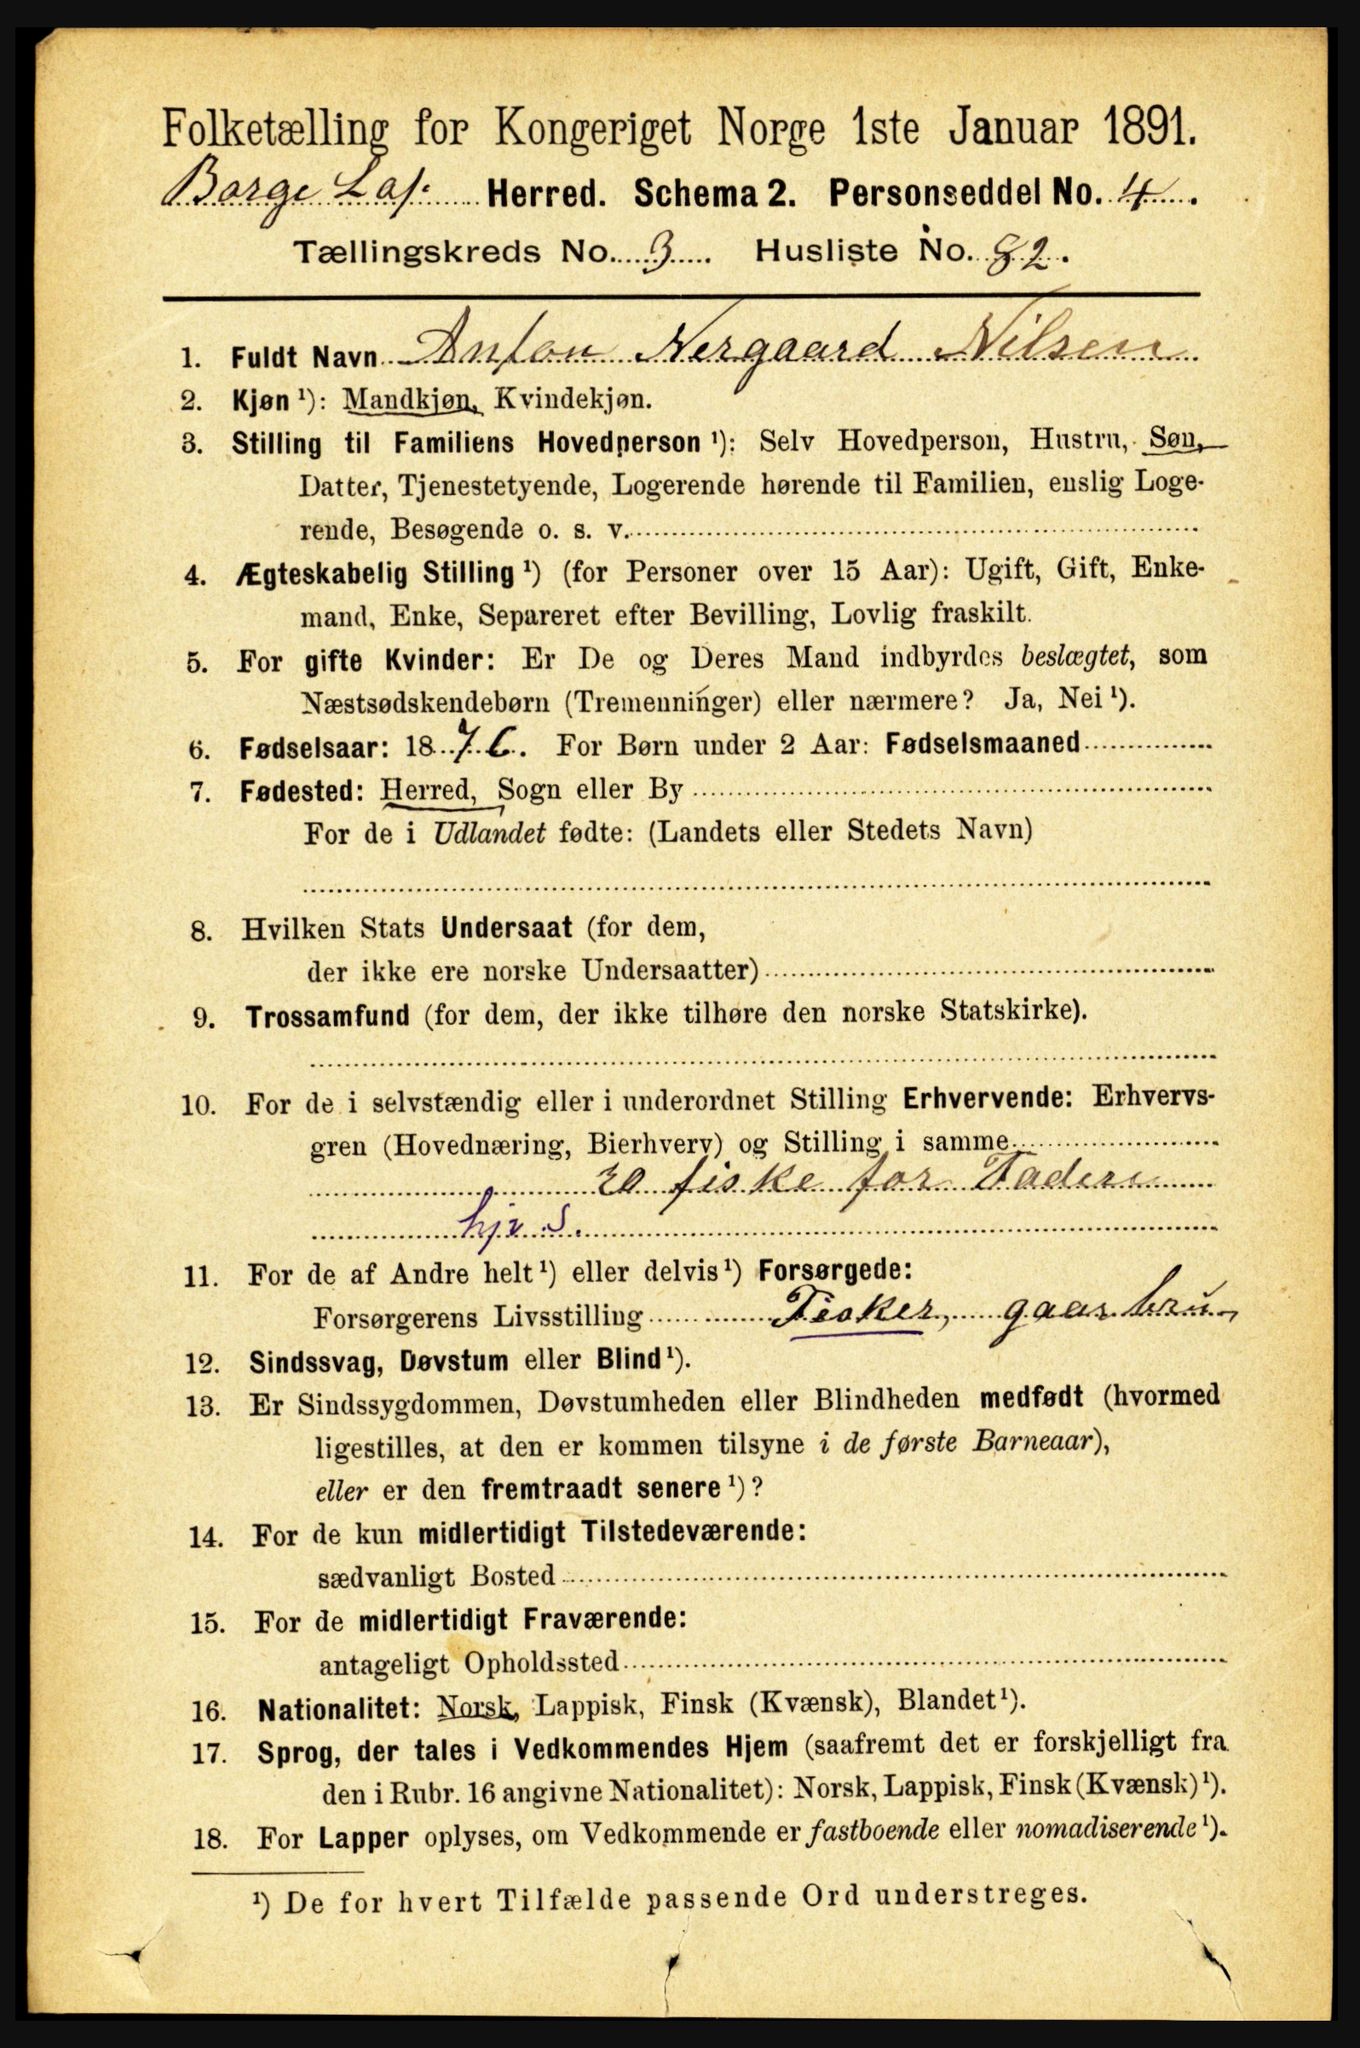 Folketælling for Kongeriget Norge 1ste Januar 1891.
Borge Lof. Herred. Schema 2. Personseddel No. 4.
Tællingskreds No. 3. Husliste No. 82.
1. Fuldt Navn Anton Nergaard Nilsen
2. Kjøn ¹): Mandkjøn, Kvindekjøn.
3. Stilling til Familiens Hovedperson ¹): Selv Hovedperson, Hustru, Søn,
Datter, Tjenestetyende, Logerende hørende til Familien, enslig Loge-
rende, Besøgende o. s. v.
4. Ægteskabelig Stilling ¹) (for Personer over 15 Aar): Ugift, Gift, Enke-
mand, Enke, Separeret efter Bevilling, Lovlig fraskilt.
5. For gifte Kvinder: Er De og Deres Mand indbyrdes beslægtet, som
Næstsødskendebørn (Tremenninger) eller nærmere? Ja, Nei ¹).
6. Fødselsaar: 1876. For Børn under 2 Aar: Fødselsmaaned
7. Fødested: Herred, Sogn eller By
For de i Udlandet fødte: (Landets eller Stedets Navn)
8. Hvilken Stats Undersaat (for dem,
der ikke ere norske Undersaatter)
9. Trossamfund (for dem, der ikke tilhøre den norske Statskirke).
10. For de i selvstændig eller i underordnet Stilling Erhvervende: Erhvervs-
gren (Hovednæring, Bierhverv) og Stilling i samme
fiske for Faderen
hjv S.
11. For de af Andre helt ¹) eller delvis ¹) Forsørgede:
Forsørgerens Livsstilling Fisker, gaarbru,
12. Sindssvag, Døvstum eller Blind ¹).
13. Er Sindssygdommen, Døvstumheden eller Blindheden medfødt (hvormed
ligestilles, at den er kommen tilsyne i de første Barneaar),
eller er den fremtraadt senere ¹)?
14. For de kun midlertidigt Tilstedeværende:
sædvanligt Bosted
15. For de midlertidigt Fraværende:
antageligt Opholdssted
16. Nationalitet: Norsk, Lappisk, Finsk (Kvænsk), Blandet ¹).
17. Sprog, der tales i Vedkommendes Hjem (saafremt det er forskjelligt fra
den i Rubr. 16 angivne Nationalitet): Norsk, Lappisk, Finsk (Kvænsk) ¹).
18. For Lapper oplyses, om Vedkommende er fastboende eller nomadiserende ¹).
¹) De for hvert Tilfælde passende Ord understreges.